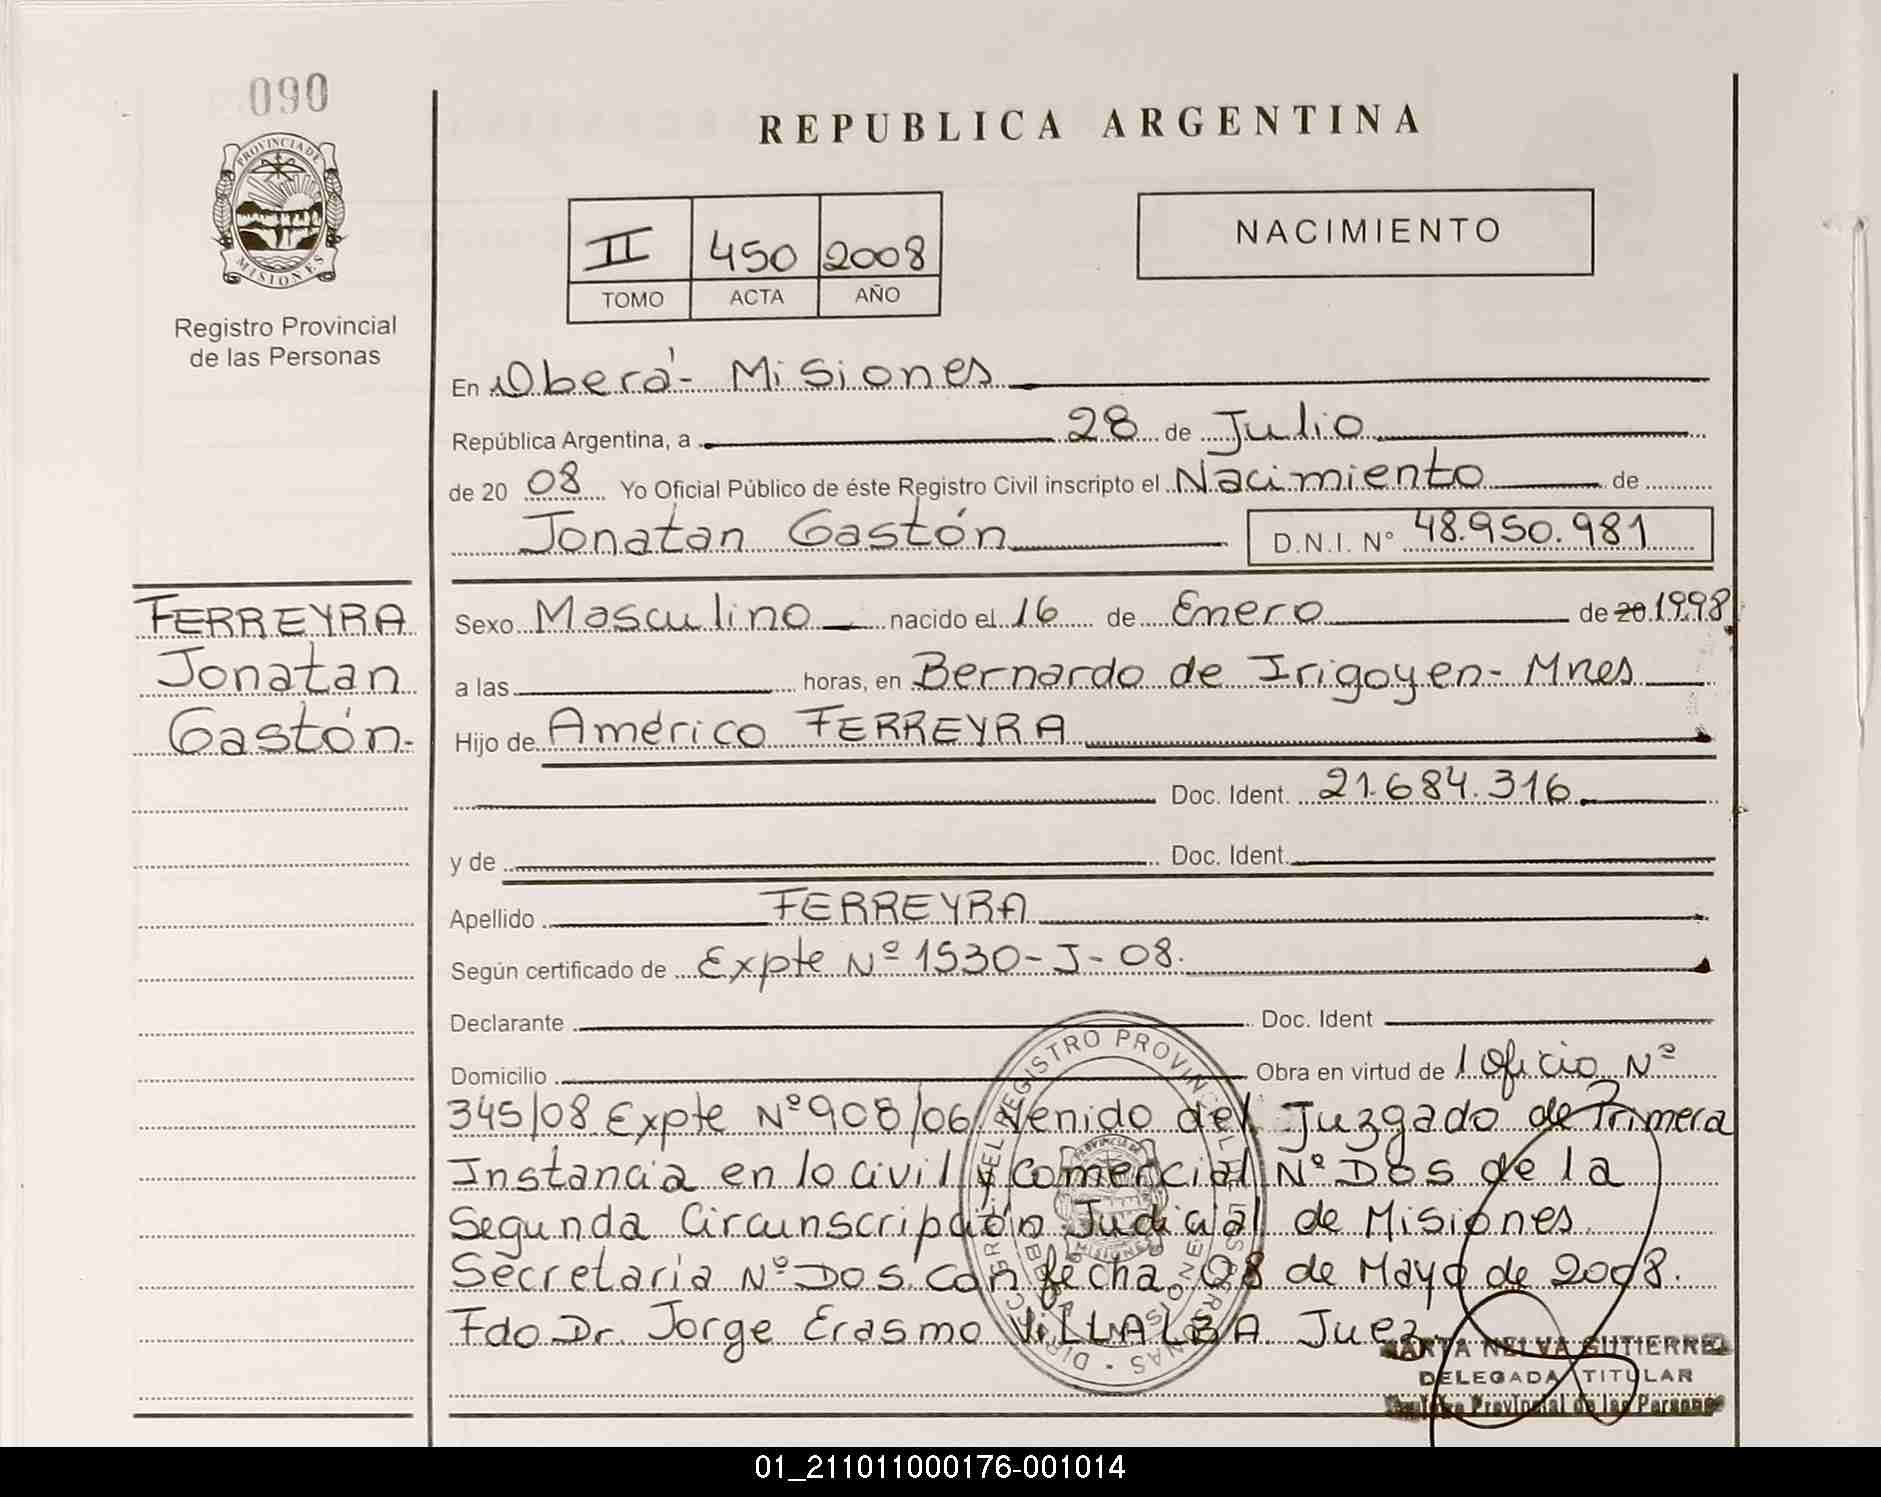 090
PROVINCIA DE
MISIONES
Registro Provincial
de las Personas
REPUBLICA ARGENTINA
II 450 2008
TOMO ACTA AÑO
NACIMIENTO
En Oberá - Misiones
República Argentina, a 28 de Julio
de 20 08 Yo Oficial Público de éste Registro Civil inscripto el Nacimiento de
Jonatan Gastón D.N.I. N° 48.950.981
FERREYRA
Jonatan
Gastón.
Sexo Masculino nacido el 16 de Enero de 20 1998
a las horas, en Bernardo de Irigoyen - Mnes
Hijo de Américo FERREYRA
Doc. Ident. 21.684.316
y de Doc. Ident.
Apellido FERREYRA
Según certificado de Expte Nº 1530-J-08.
Declarante Doc. Ident
Domicilio Obra en virtud de 1 Oficio Nº
345/08 Expte Nº 908/06 Venido del Juzgado de Primera
Instancia en lo civil y Comercial Nº DOS de la
Segunda Circunscripción Judicial de Misiones
Secretaria Nº DOS con fecha 08 de Mayo de 2008.
Fdo Dr. Jorge Erasmo VILLALBA Juez
MARTA NELVA GUTIERRE
DELEGADA TITULAR
Provincial de las Personas
01_211011000176-001014